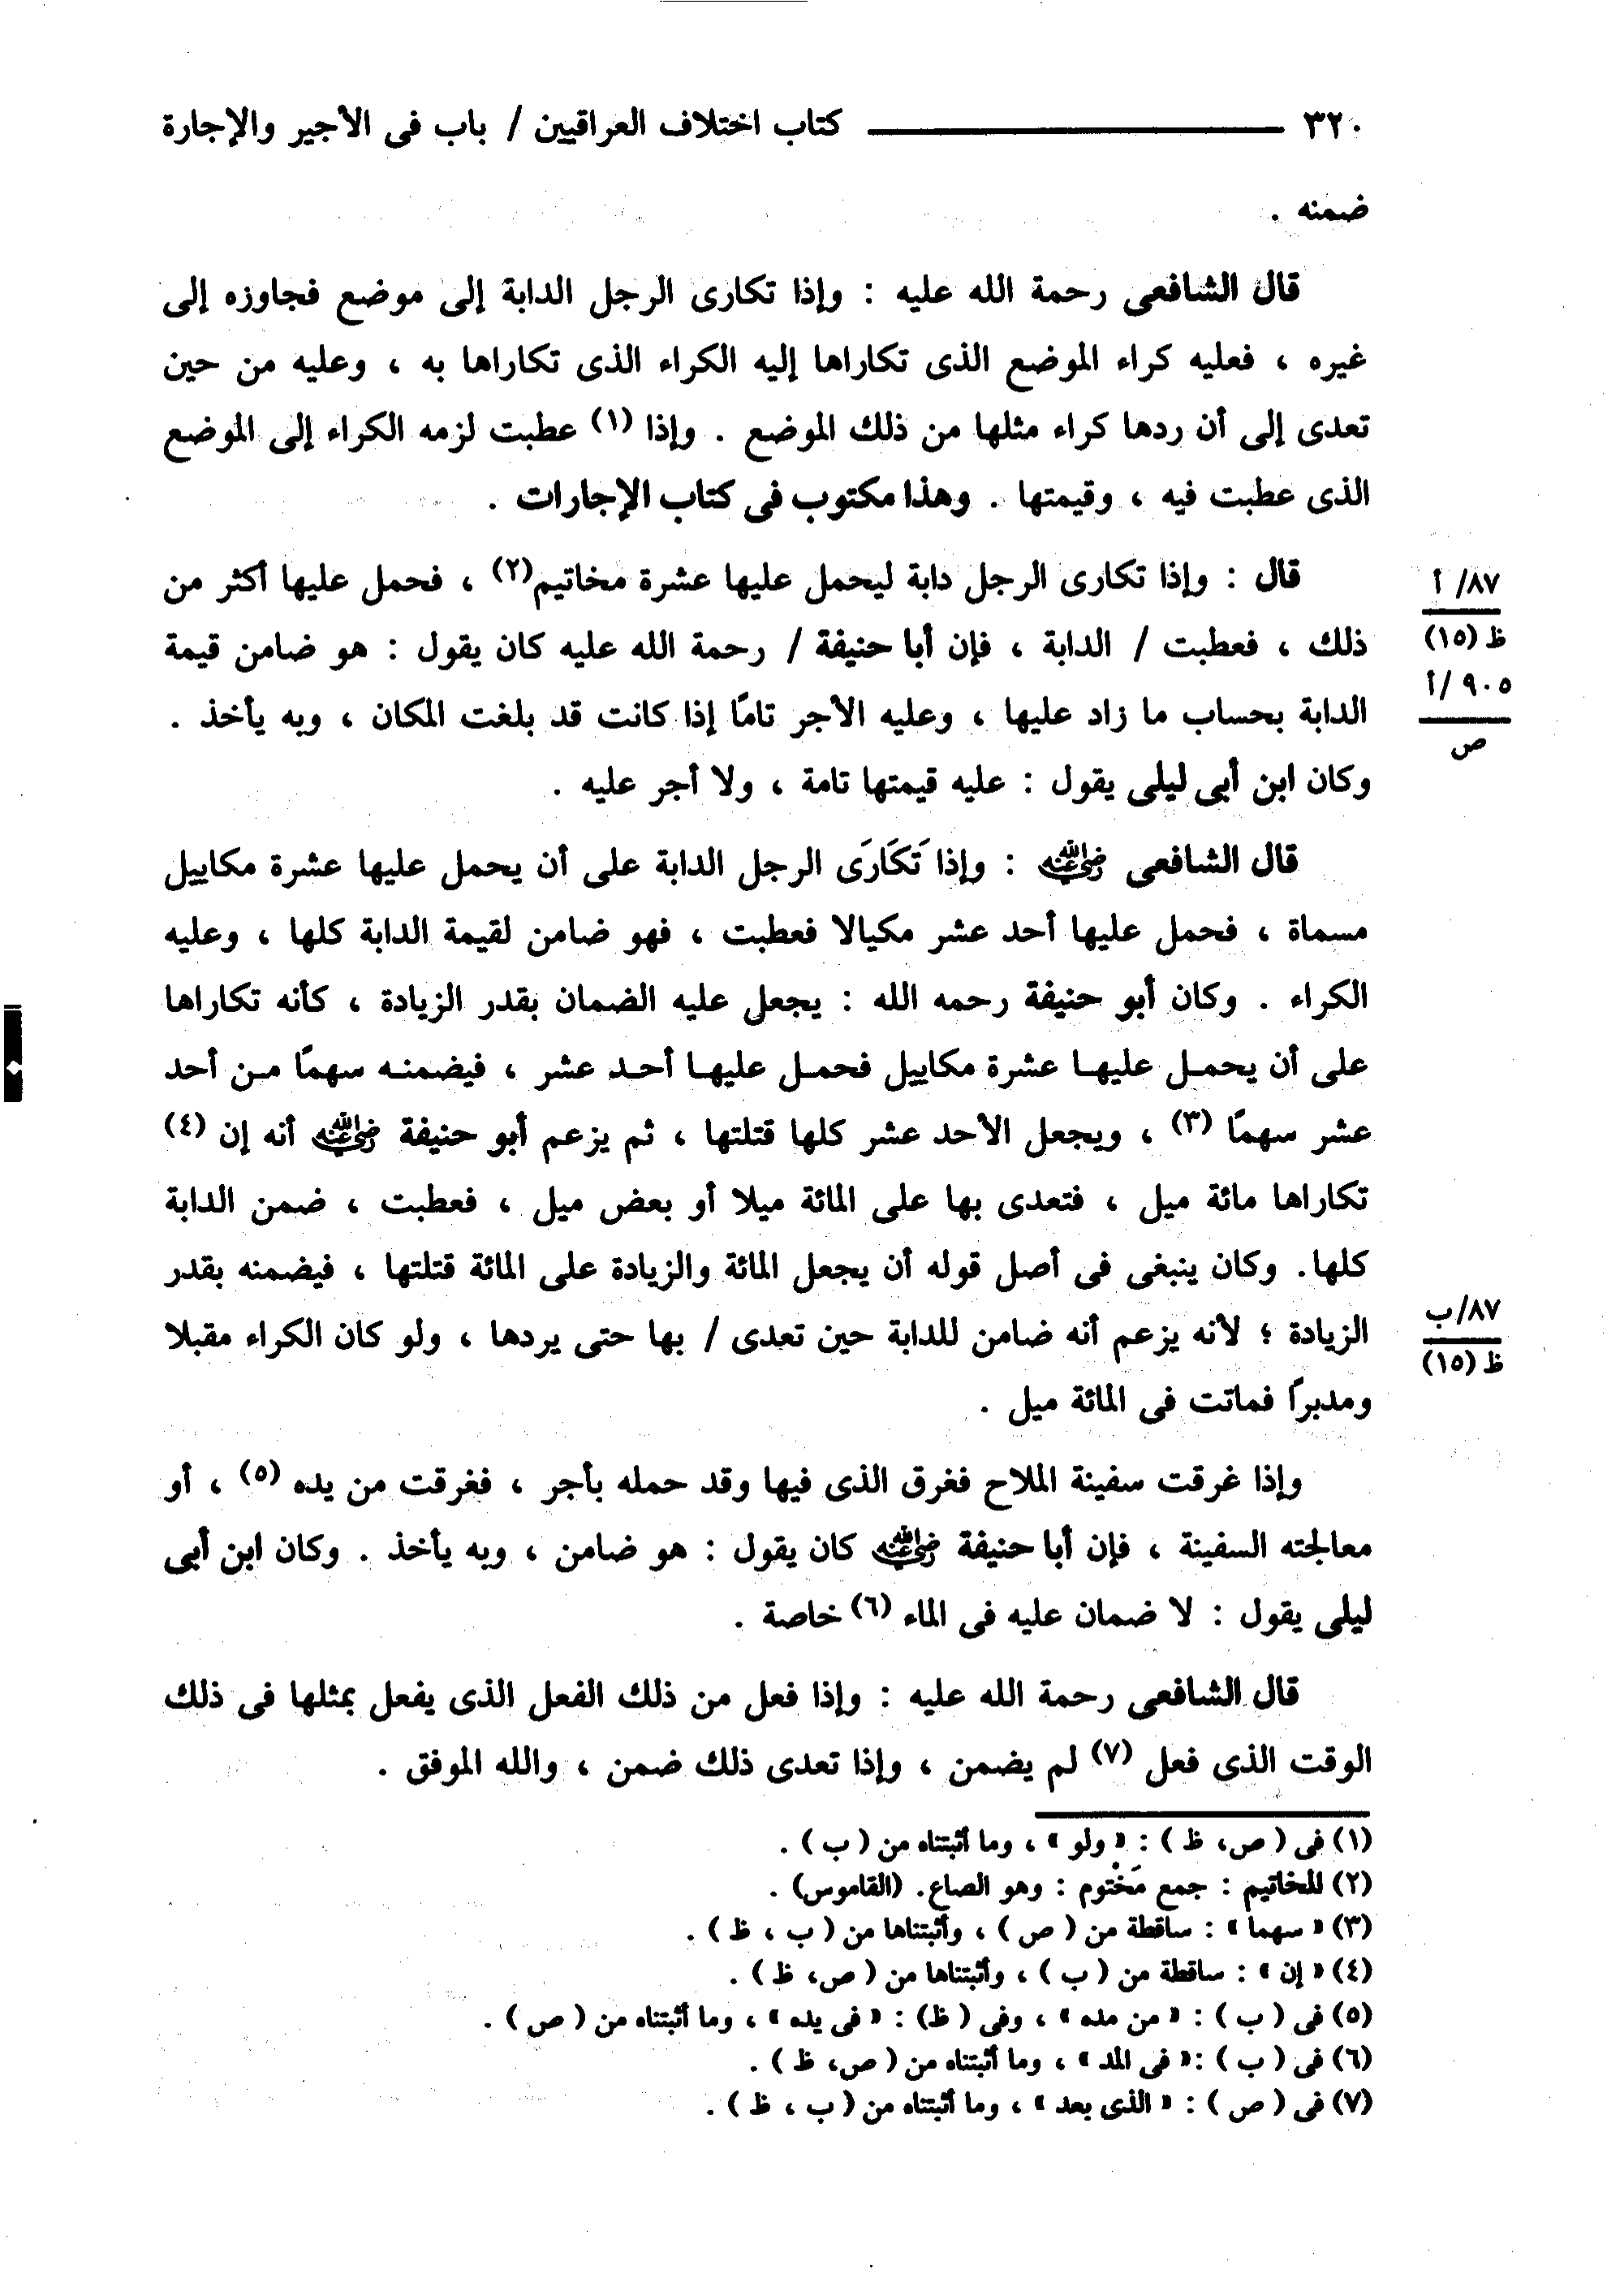 ٣٢٠ كتاب اختلاف العراقيين / باب فى الأجير والإجارة
ضمنه .
قال الشافعى رحمة الله عليه : وإذا تكارى الرجل الدابة إلى موضع فجاوزه إلى
غيره ، فعليه كراء الموضع الذى تكاراها إليه الكراء الذى تكاراها به ، وعليه من حين
تعدى إلى أن ردها كراء مثلها من ذلك الموضع . وإذا (١) عطبت لزمه الكراء إلى الموضع
الذى عطبت فيه ، وقيمتها . وهذا مكتوب فى كتاب الإجارات .
قال : وإذا تكارى الرجل دابة ليحمل عليها عشرة مخاتيم(٢) ، فحمل عليها أكثر من
ذلك ، فعطبت / الدابة ، فإن أبا حنيفة / رحمة الله عليه كان يقول : هو ضامن قيمة
الدابة بحساب ما زاد عليها ، وعليه الأجر تامًا إذا كانت قد بلغت المكان ، وبه يأخذ .
وكان ابن أبى ليلى يقول : عليه قيمتها تامة ، ولا أجر عليه .
٨٧/ أ
ظ (١٥)
٩٠٥/ أ
ص
قال الشافعى رضي الله عنه : وإذا تَكَارَى الرجل الدابة على أن يحمل عليها عشرة مكاييل
مسماة ، فحمل عليها أحد عشر مكيالا فعطبت ، فهو ضامن لقيمة الدابة كلها ، وعليه
الكراء . وكان أبو حنيفة رحمه الله : يجعل عليه الضمان بقدر الزيادة ، كأنه تكاراها
على أن يحمل عليها عشرة مكاييل فحمل عليها أحد عشر ، فيضمنه سهمًا من أحد
عشر سهمًا (٣) ، ويجعل الأحد عشر كلها قتلتها ، ثم يزعم أبو حنيفة رضي الله عنه أنه إن (٤)
تكاراها مائة ميل ، فتعدى بها على المائة ميلا أو بعض ميل ، فعطبت ، ضمن الدابة
كلها. وكان ينبغى فى أصل قوله أن يجعل المائة والزيادة على المائة قتلتها ، فيضمنه بقدر
الزيادة ؛ لأنه يزعم أنه ضامن للدابة حين تعدى / بها حتى يردها ، ولو كان الكراء مقبلا
ومدبرًا فماتت فى المائة ميل .
٨٧/ب
ظ (١٥)
وإذا غرقت سفينة الملاح فغرق الذى فيها وقد حمله بأجر ، فغرقت من يده (٥) ، أو
معالجته السفينة ، فإن أبا حنيفة رضي الله عنه كان يقول : هو ضامن ، وبه يأخذ . وكان ابن أبى
ليلى يقول : لا ضمان عليه فى الماء (٦) خاصة .
قال الشافعى رحمة الله عليه : وإذا فعل من ذلك الفعل الذى يفعل بمثلها فى ذلك
الوقت الذى فعل (٧) لم يضمن ، وإذا تعدى ذلك ضمن ، والله الموفق .
(١) فى ( ص، ظ ) : « ولو » ، وما أثبتناه من ( ب ) .
(٢) المخاتيم : جمع مَخْتوم : وهو الصاع. (القاموس) .
(٣) « سهما » : ساقطة من ( ص ) ، وأثبتناها من ( ب ، ظ ) .
(٤) « إن » : ساقطة من ( ب ) ، وأثبتناها من ( ص، ظ ) .
(٥) فى ( ب ) : « من مده » ، وفى ( ظ) : « فى يده » ، وما أثبتناه من ( ص ) .
(٦) فى ( ب ) :« فى المد » ، وما أثبتناه من ( ص، ظ ) .
(٧) فى ( ص ) : « الذى بعد » ، وما أثبتناه من ( ب ، ظ ) .